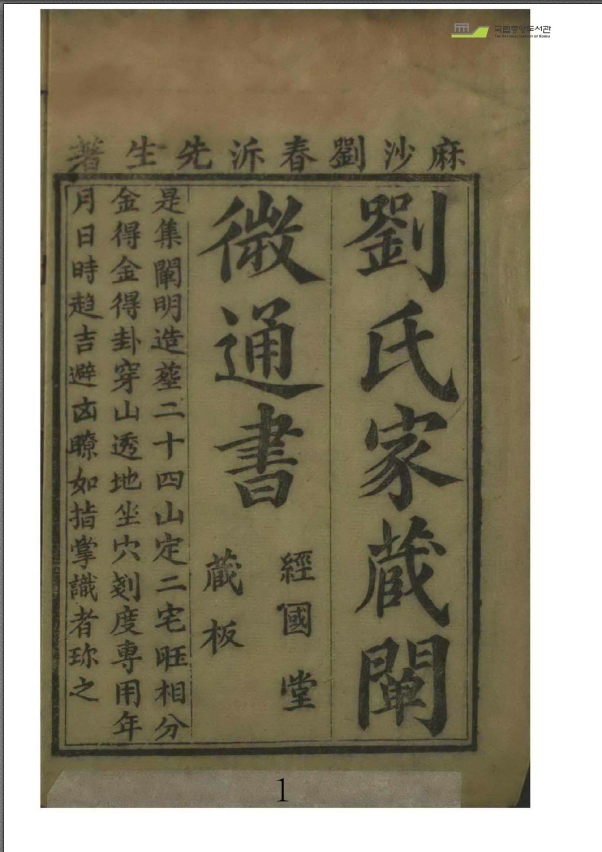 국립중앙도서관
麻沙劉春沂先生著
劉氏家蔵闡
微通書
經國堂
蔵板
是集闡明造塟二十四山定二宅旺相分
金得金得卦穿山透地坐穴刻度専用年
月日時趋吉避凶瞭如指掌識者珎之
1